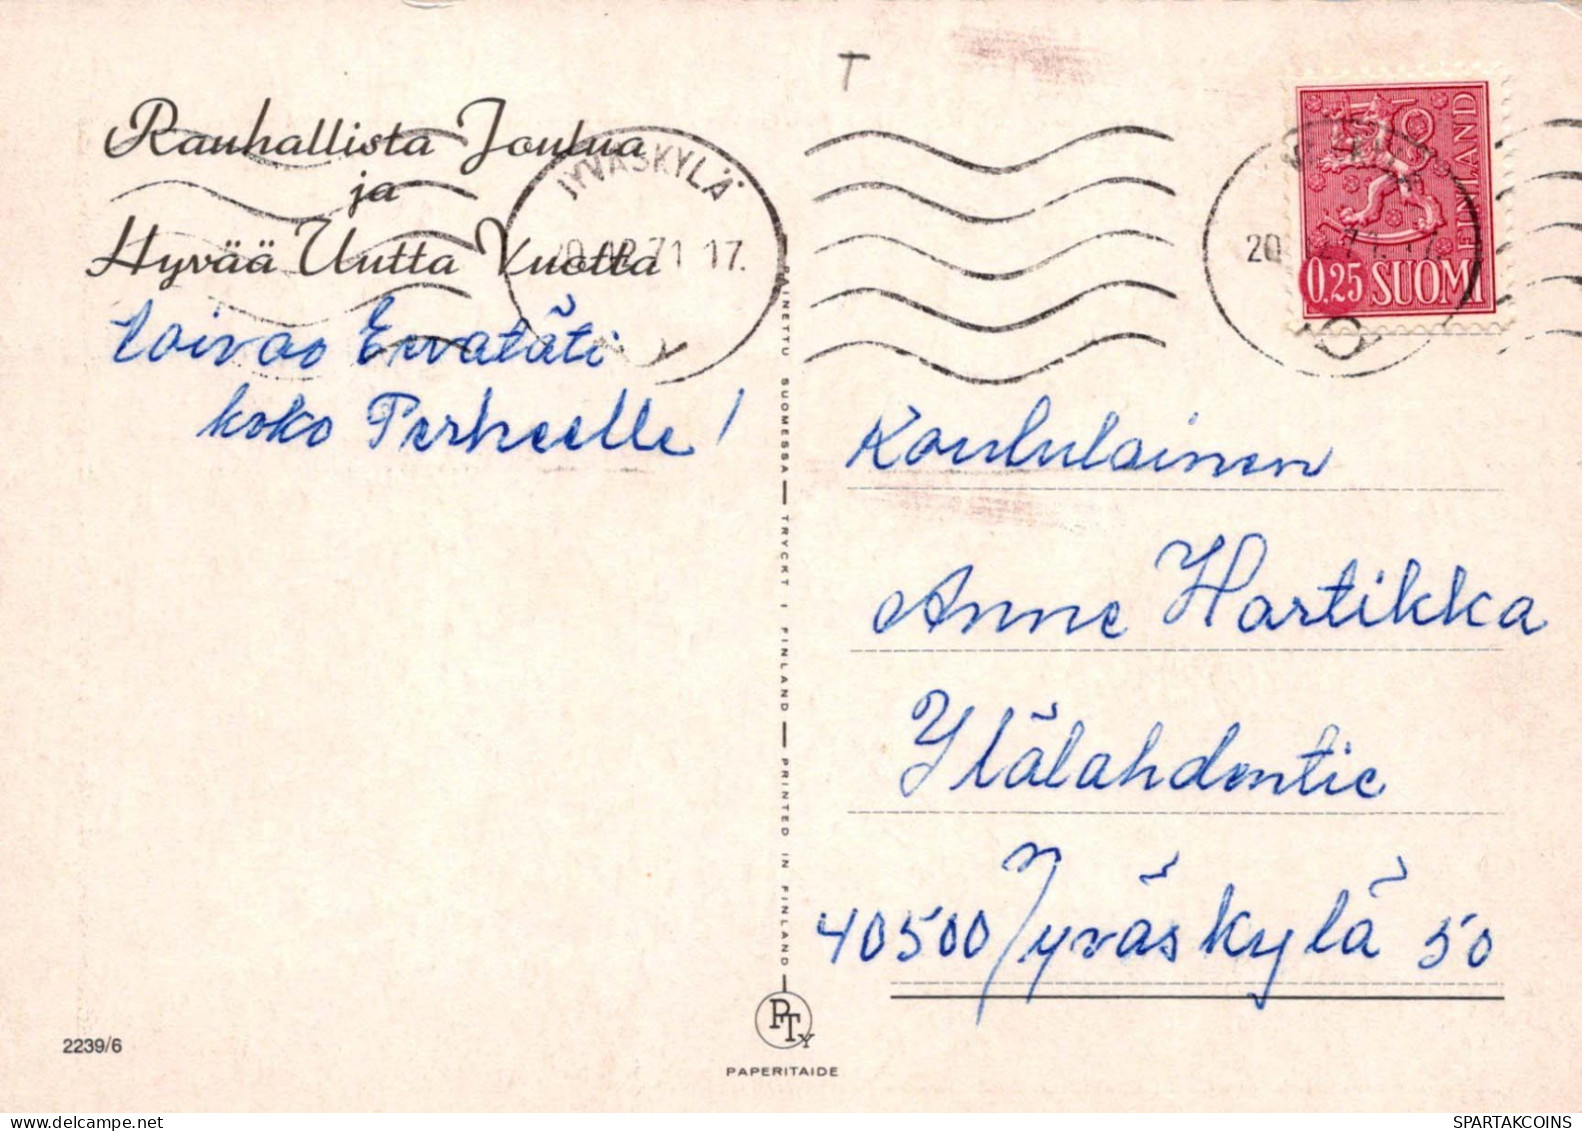 T
Rauhallista Joulua
ja
Hyvää Uutta Vuotta
toivao Eevatäti
koko Perheelle!
JYVÄSKYLÄ
71 17.
20
FINLAND
0.25 SUOMI
Koululainen
Anne Hartikka
Ylälahdentie
40500 Jyväskylä 50
PAINETTU SUOMESSA — TRYCKT I FINLAND — PRINTED IN FINLAND
PTy
PAPERITAIDE
2239/6
SPARTAKCOINS.COM